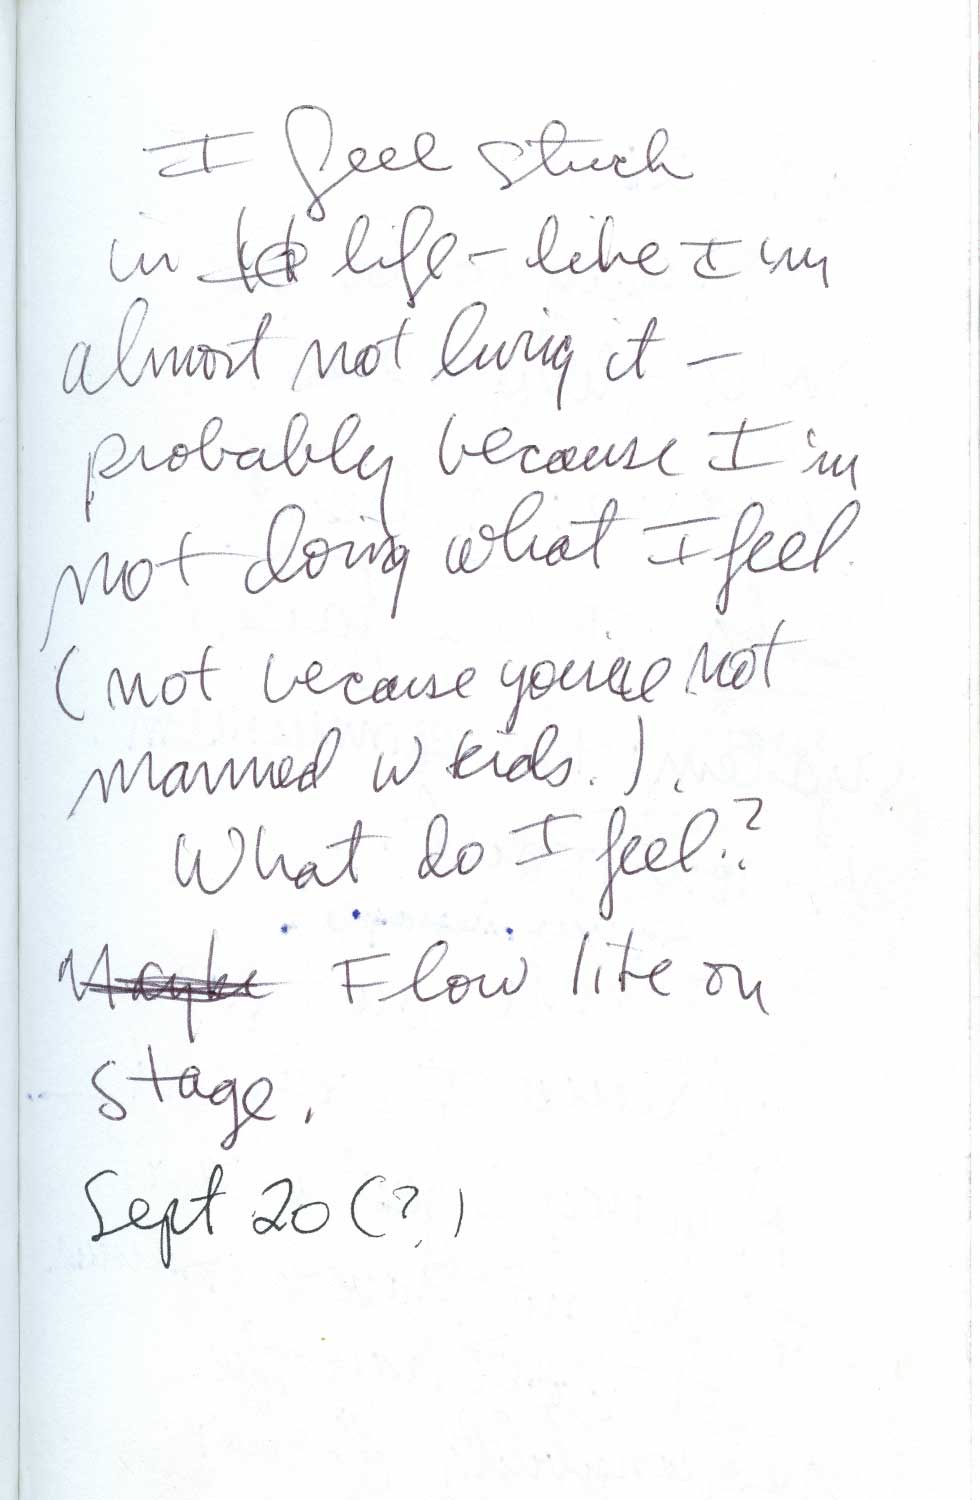 I feel stuck
in life - like I'm
almost not living it -
probably because I'm
not doing what I feel
(not because you're not
married w kids.).
What do I feel?
Maybe Flow like on
stage.
Sept 20 (?)